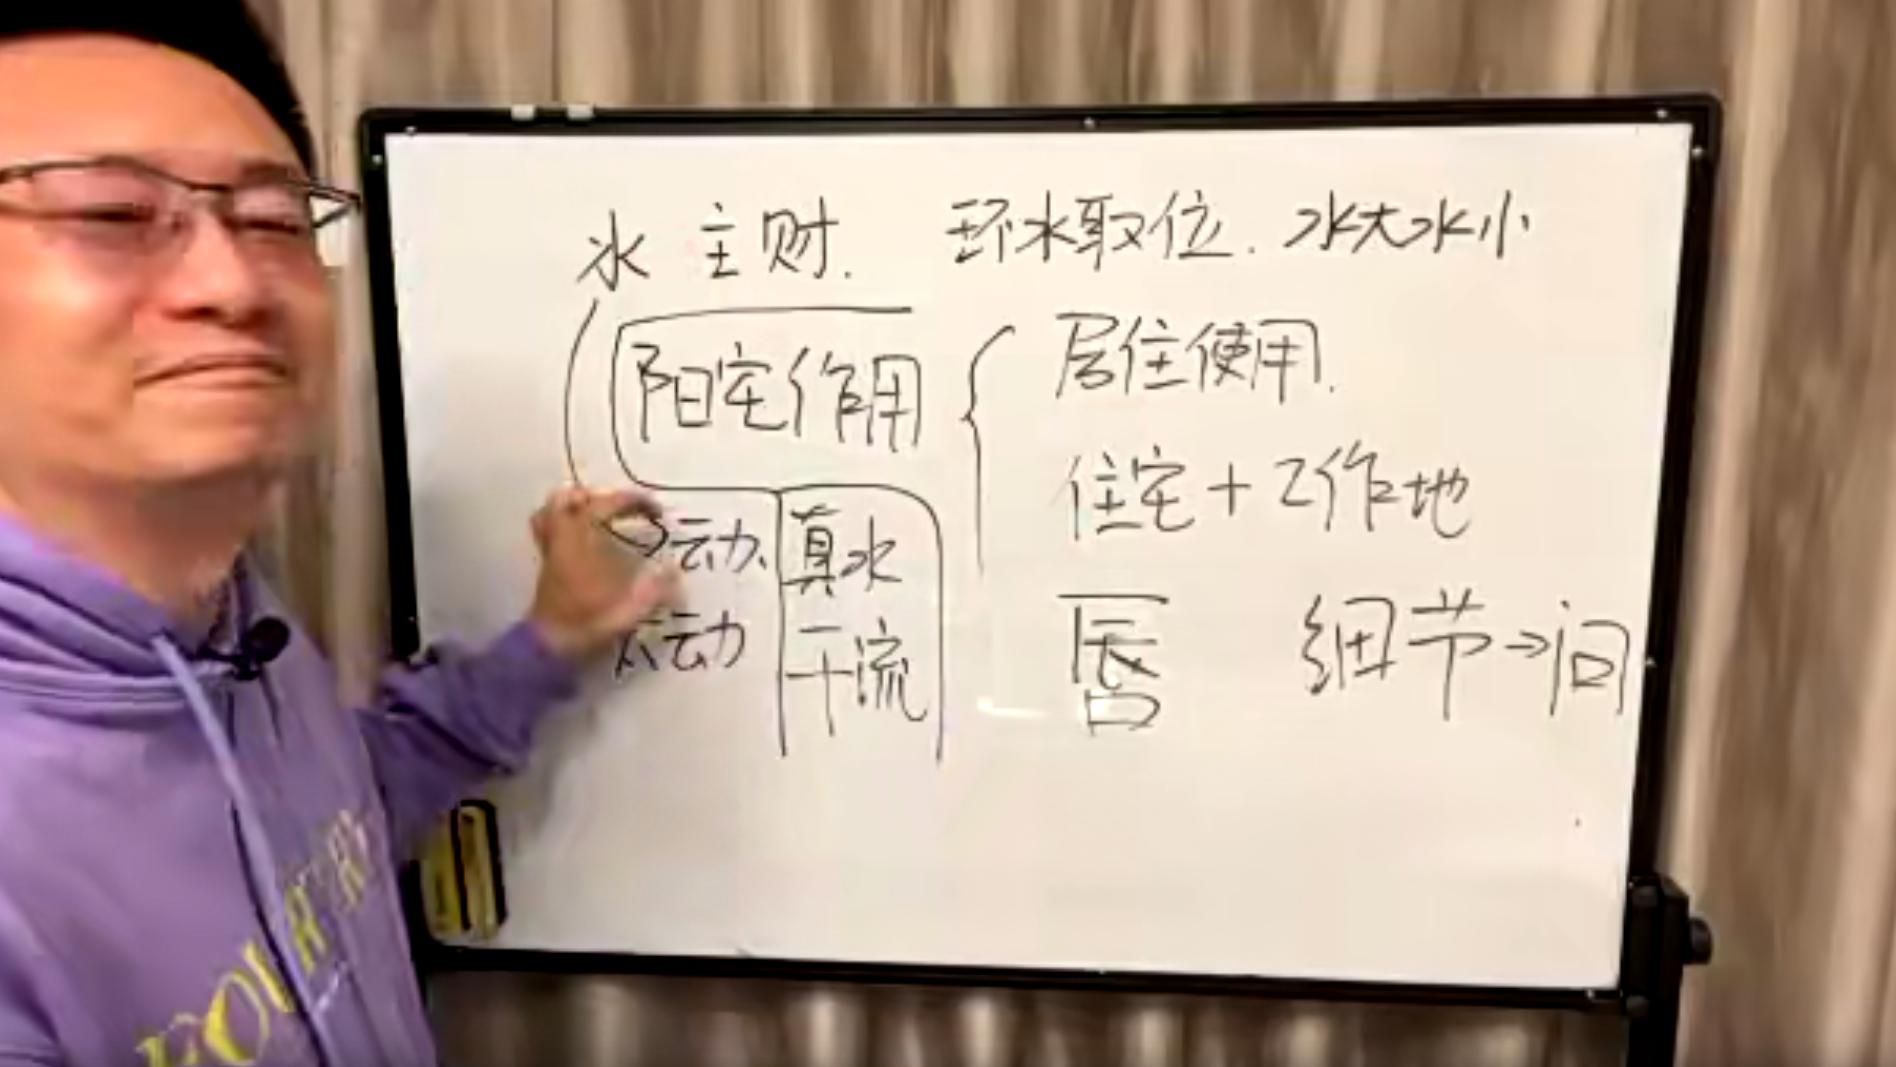 水主财. 环水取位. 水大水小
阳宅作用
居住使用.
住宅+工作地
运动、
太运动
真水
干流
唇
细节→问